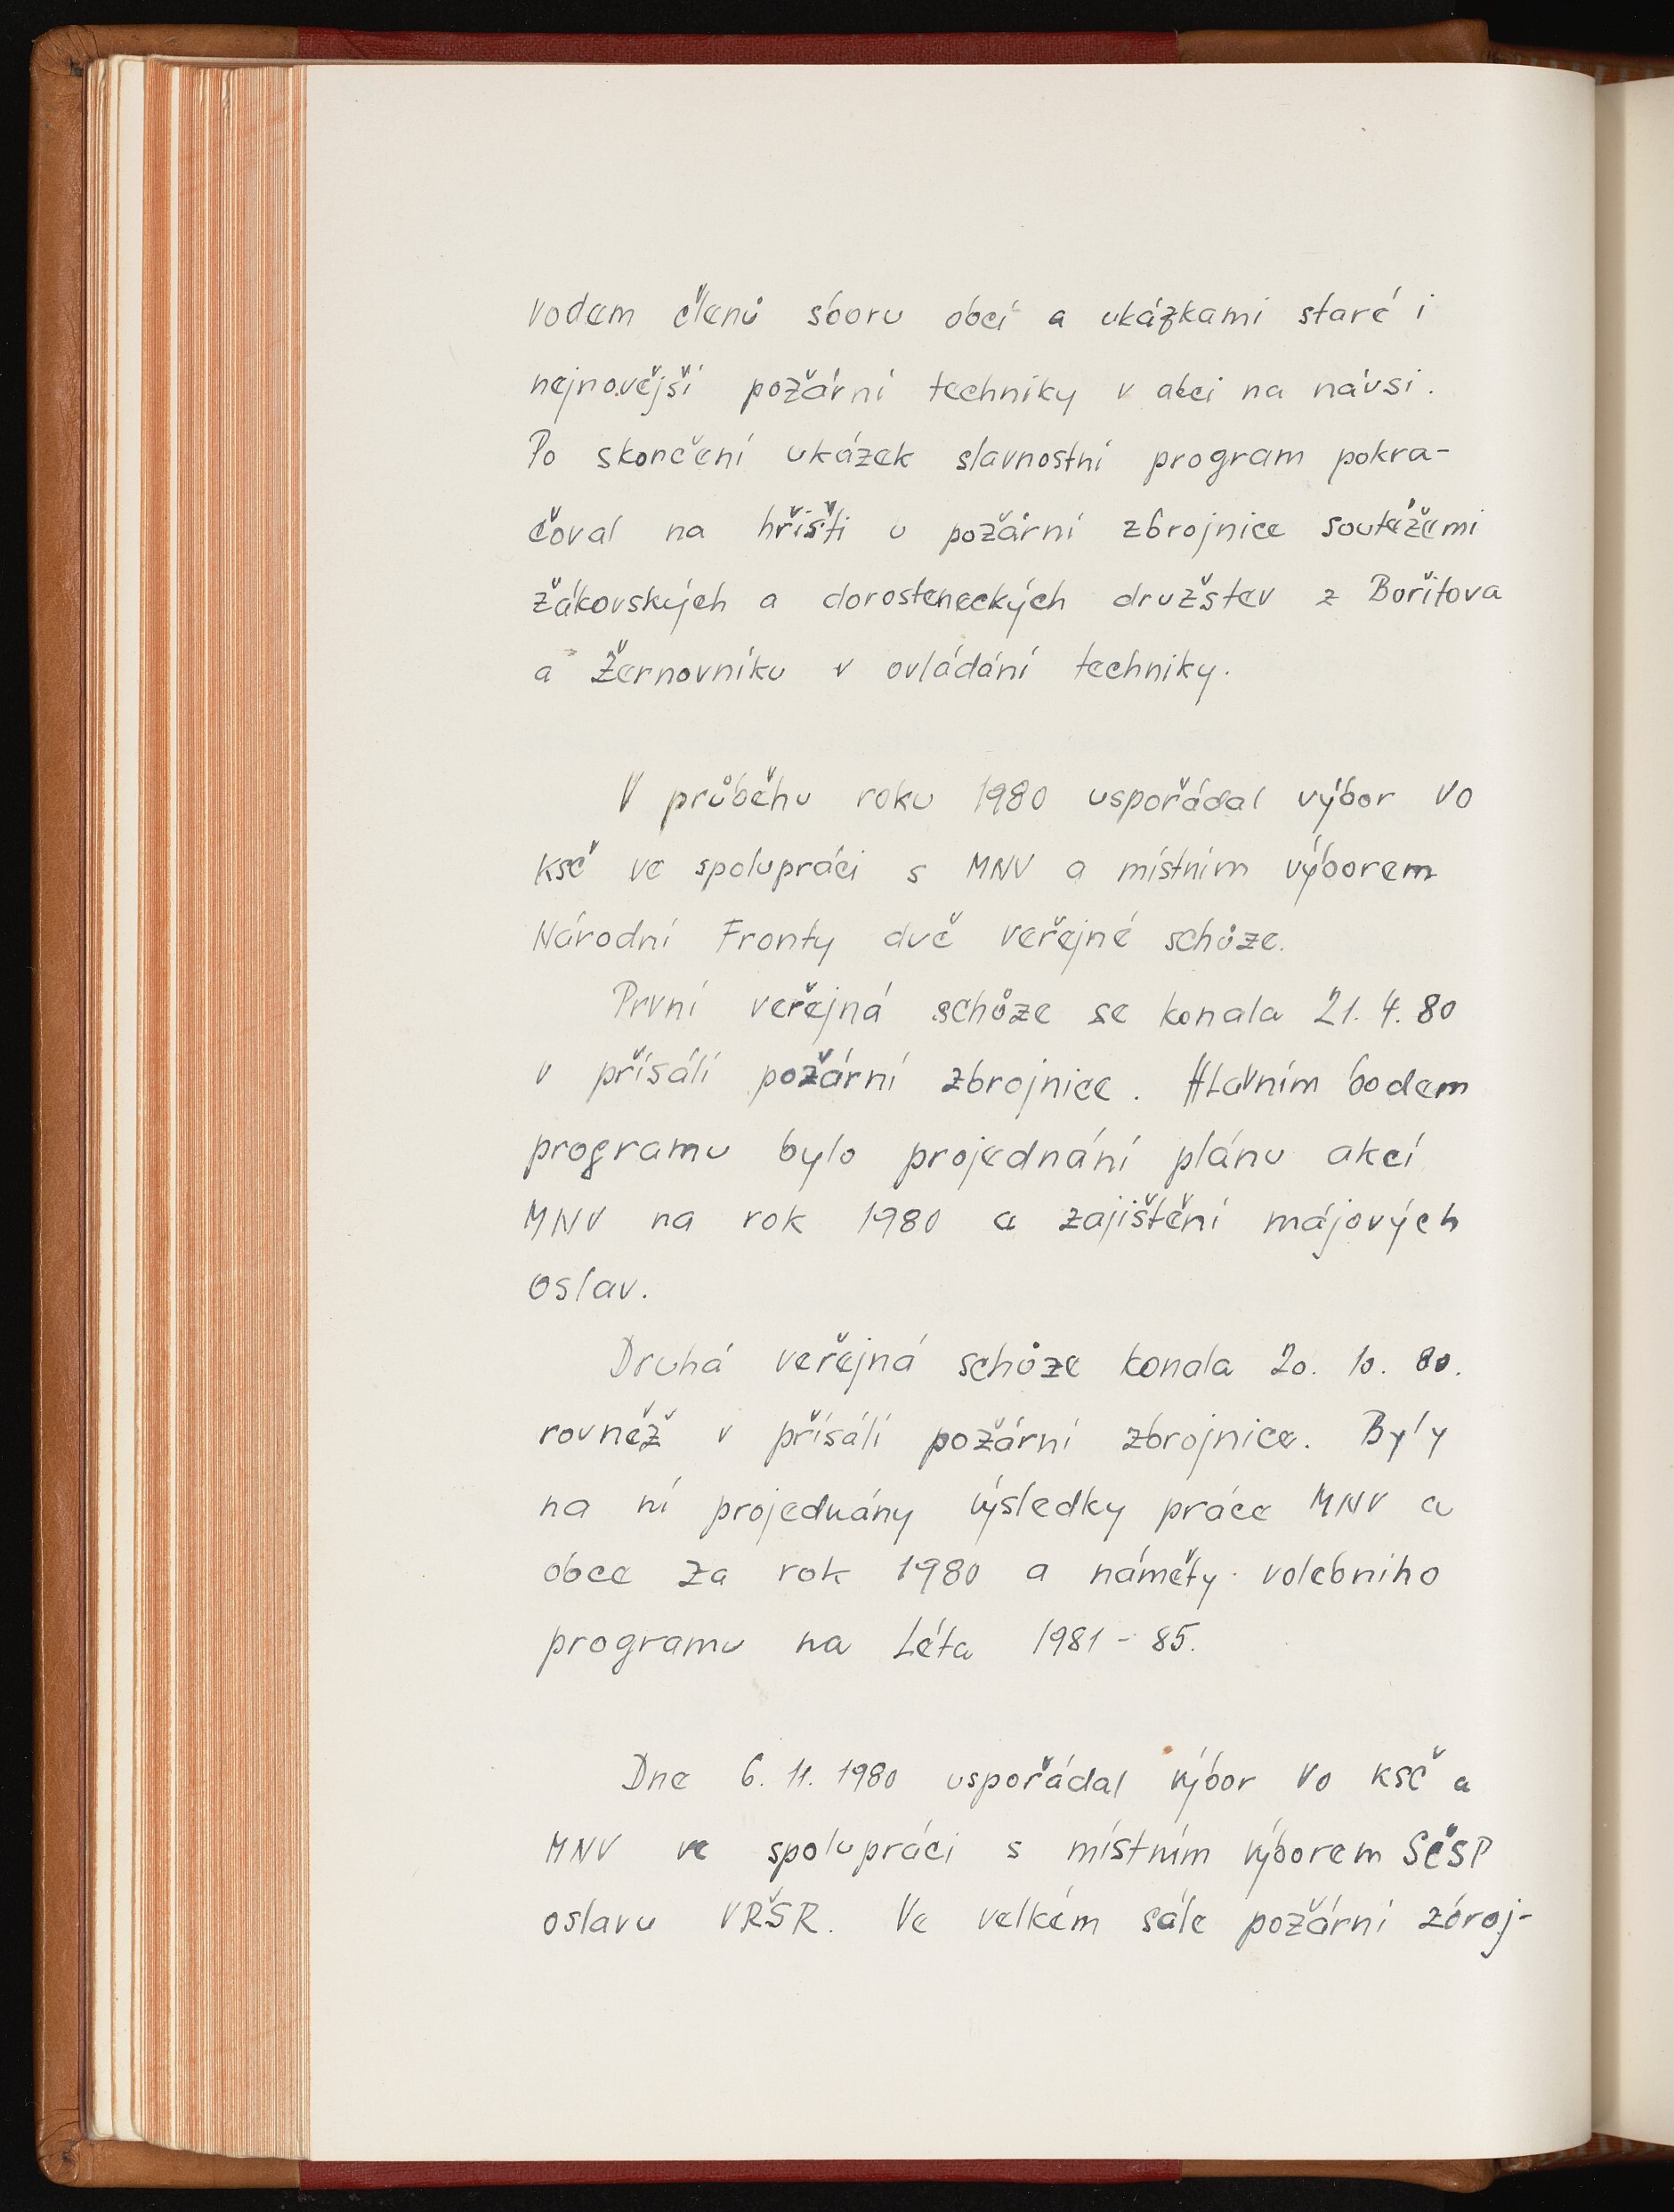 vodem členů sboru obcí a ukázkami staré i
nejnovější požární techniky v akci na návsi.
Po skončení ukázek slavnostní program pokra-
čoval na hřišti u požární zbrojnice soutěžemi
žákovských a dorosteneckých družstev z Bořitova
a Žernovníku v ovládání techniky.
V průběhu roku 1980 uspořádal výbor VO
KSČ ve spolupráci s MNV a místním výborem
Národní Fronty dvě veřejné schůze.
První veřejná schůze se konala 21. 4. 80
v přísálí požární zbrojnice. Hlavním bodem
programu bylo projednání plánu akcí
MNV na rok 1980 a zajištění májových
oslav.
Druhá veřejná schůze konala 20. 10. 80.
rovněž v přísálí požární zbrojnice. Byly
na ní projednány výsledky práce MNV a
obce za rok 1980 a náměty volebního
programu na léta 1981 - 85.
Dne 6. 11. 1980 uspořádal výbor VO KSČ a
MNV ve spolupráci s místním výborem SČSP
oslavu VŘSR. Ve velkém sále požární zbroj-